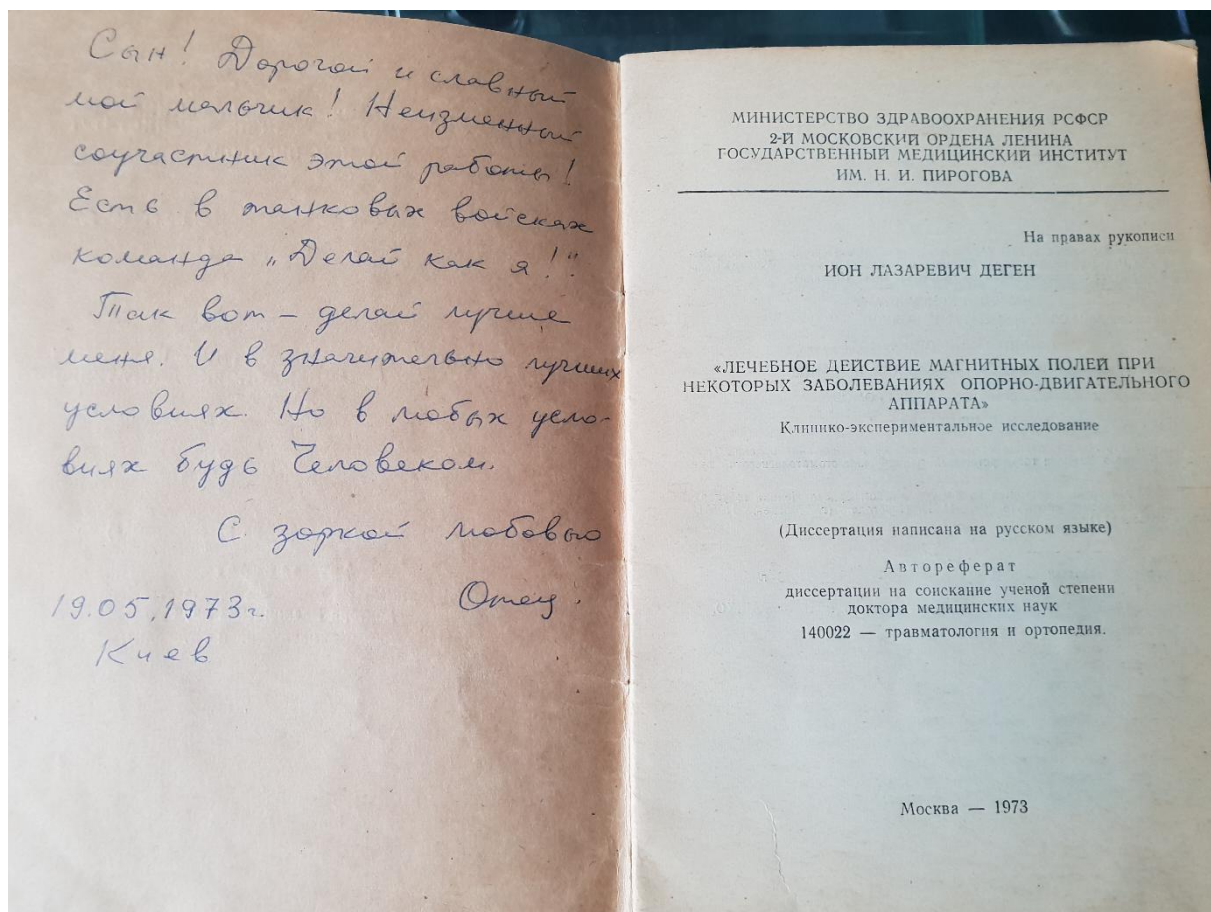 Сын! Дорогой и славный
мой мальчик! Неизменный
соучастник этой работы!
Есть в танковых войсках
команда „Делай как я!"
Так вот – делай лучше
меня. И в значительно лучших
условиях. Но в любых усло-
виях будь Человеком.
С зоркой любовью
Отец.
19.05.1973г.
Киев
МИНИСТЕРСТВО ЗДРАВООХРАНЕНИЯ РСФСР
2-Й МОСКОВСКИЙ ОРДЕНА ЛЕНИНА
ГОСУДАРСТВЕННЫЙ МЕДИЦИНСКИЙ ИНСТИТУТ
ИМ. Н. И. ПИРОГОВА
На правах рукописи
ИОН ЛАЗАРЕВИЧ ДЕГЕН
«ЛЕЧЕБНОЕ ДЕЙСТВИЕ МАГНИТНЫХ ПОЛЕЙ ПРИ
НЕКОТОРЫХ ЗАБОЛЕВАНИЯХ ОПОРНО-ДВИГАТЕЛЬНОГО
АППАРАТА»
Клинико-экспериментальное исследование
(Диссертация написана на русском языке)
Автореферат
диссертации на соискание ученой степени
доктора медицинских наук
140022 — травматология и ортопедия.
Москва — 1973